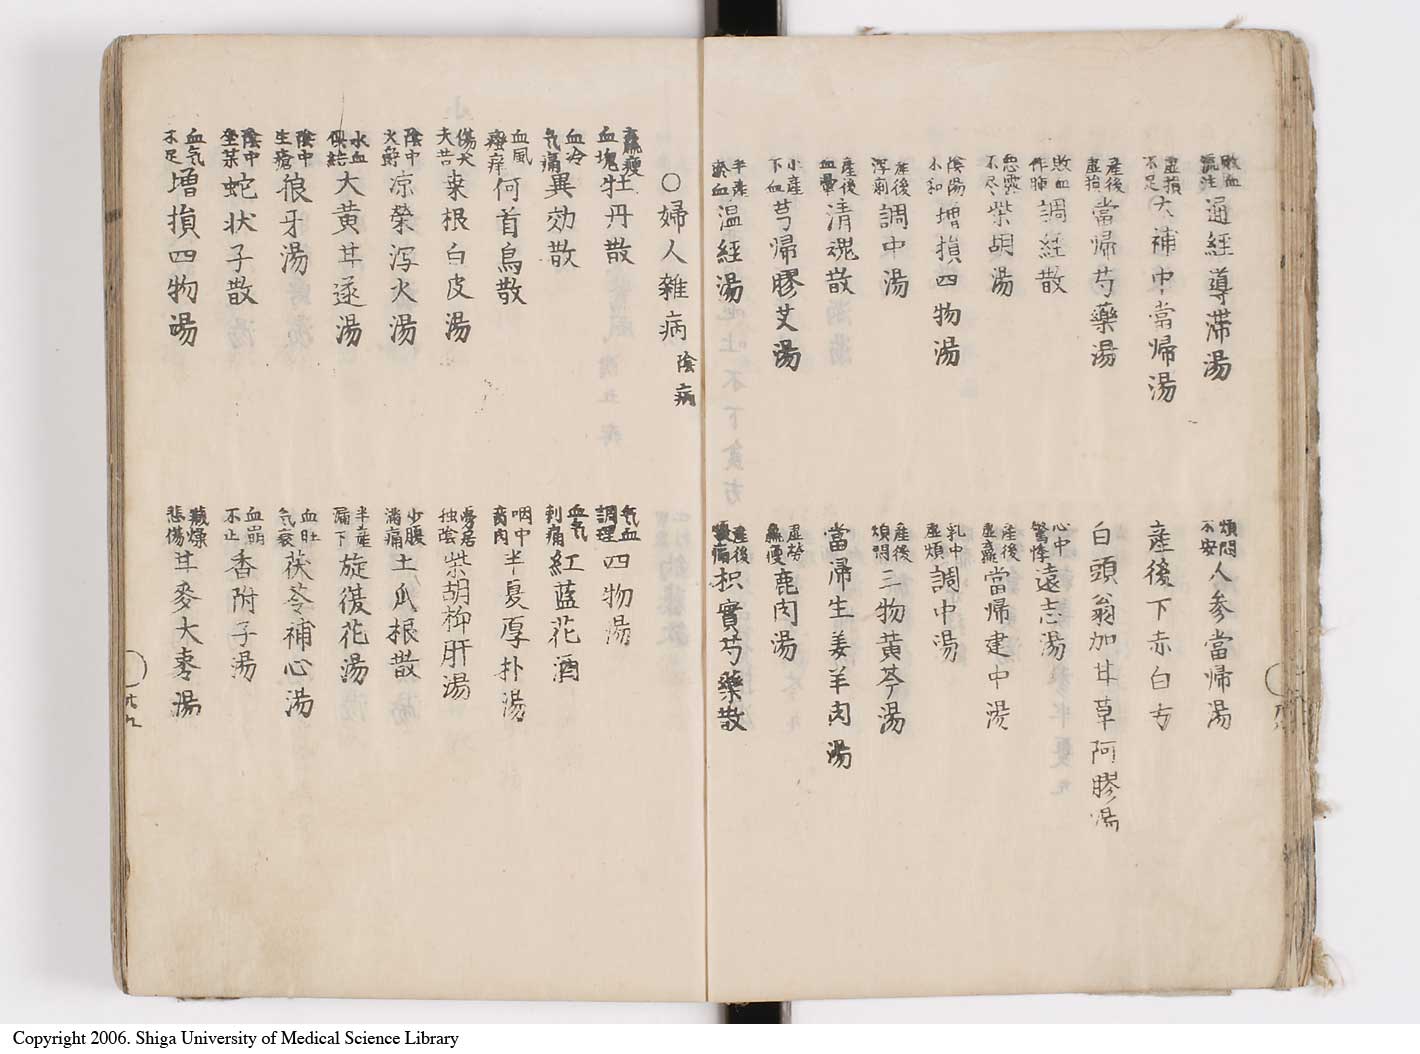 敗血流注 通經導滞湯
煩悶不安 人参當帰湯
虚損不足 大補中當帰湯
産後下赤白方
産後虚損 當帰芍藥湯
白頭翁加甘草阿膠湯
敗血作腫 調経散
心中驚悸 遠志湯
悪露不尽 柴胡湯
産後虚羸 當帰建中湯
陰陽不和 増損四物湯
乳中虚煩 調中湯
産後瀉痢 調中湯
産後煩悶 三物黄芩湯
産後血暈 清魂散
當帰生姜羊肉湯
小産下血 芎帰膠艾湯
虚労羸痩 鹿肉湯
半産瘀血 温経湯
産後腹痛 枳實芍藥散
○婦人雜病 陰病
羸痩血塊 牡丹散
気血調理 四物湯
血冷気痛 異効散
血気刺痛 紅藍花酒
血風瘙痒 何首烏散
咽中臠肉 半夏厚朴湯
傷丈夫苦 桒根白皮湯
寡居独陰 柴胡抑肝湯
陰中火欝 凉榮瀉火湯
少腹満痛 土瓜根散
水血俱結 大黄甘遂湯
半産漏下 旋復花湯
陰中生瘡 狼牙湯
血旺気衰 茯苓補心湯
陰中坐薬 蛇状子散
血崩不止 香附子湯
血気不足 増損四物湯
臓燥悲傷 甘麥大棗湯
廿九
Copyright 2006. Shiga University of Medical Science Library